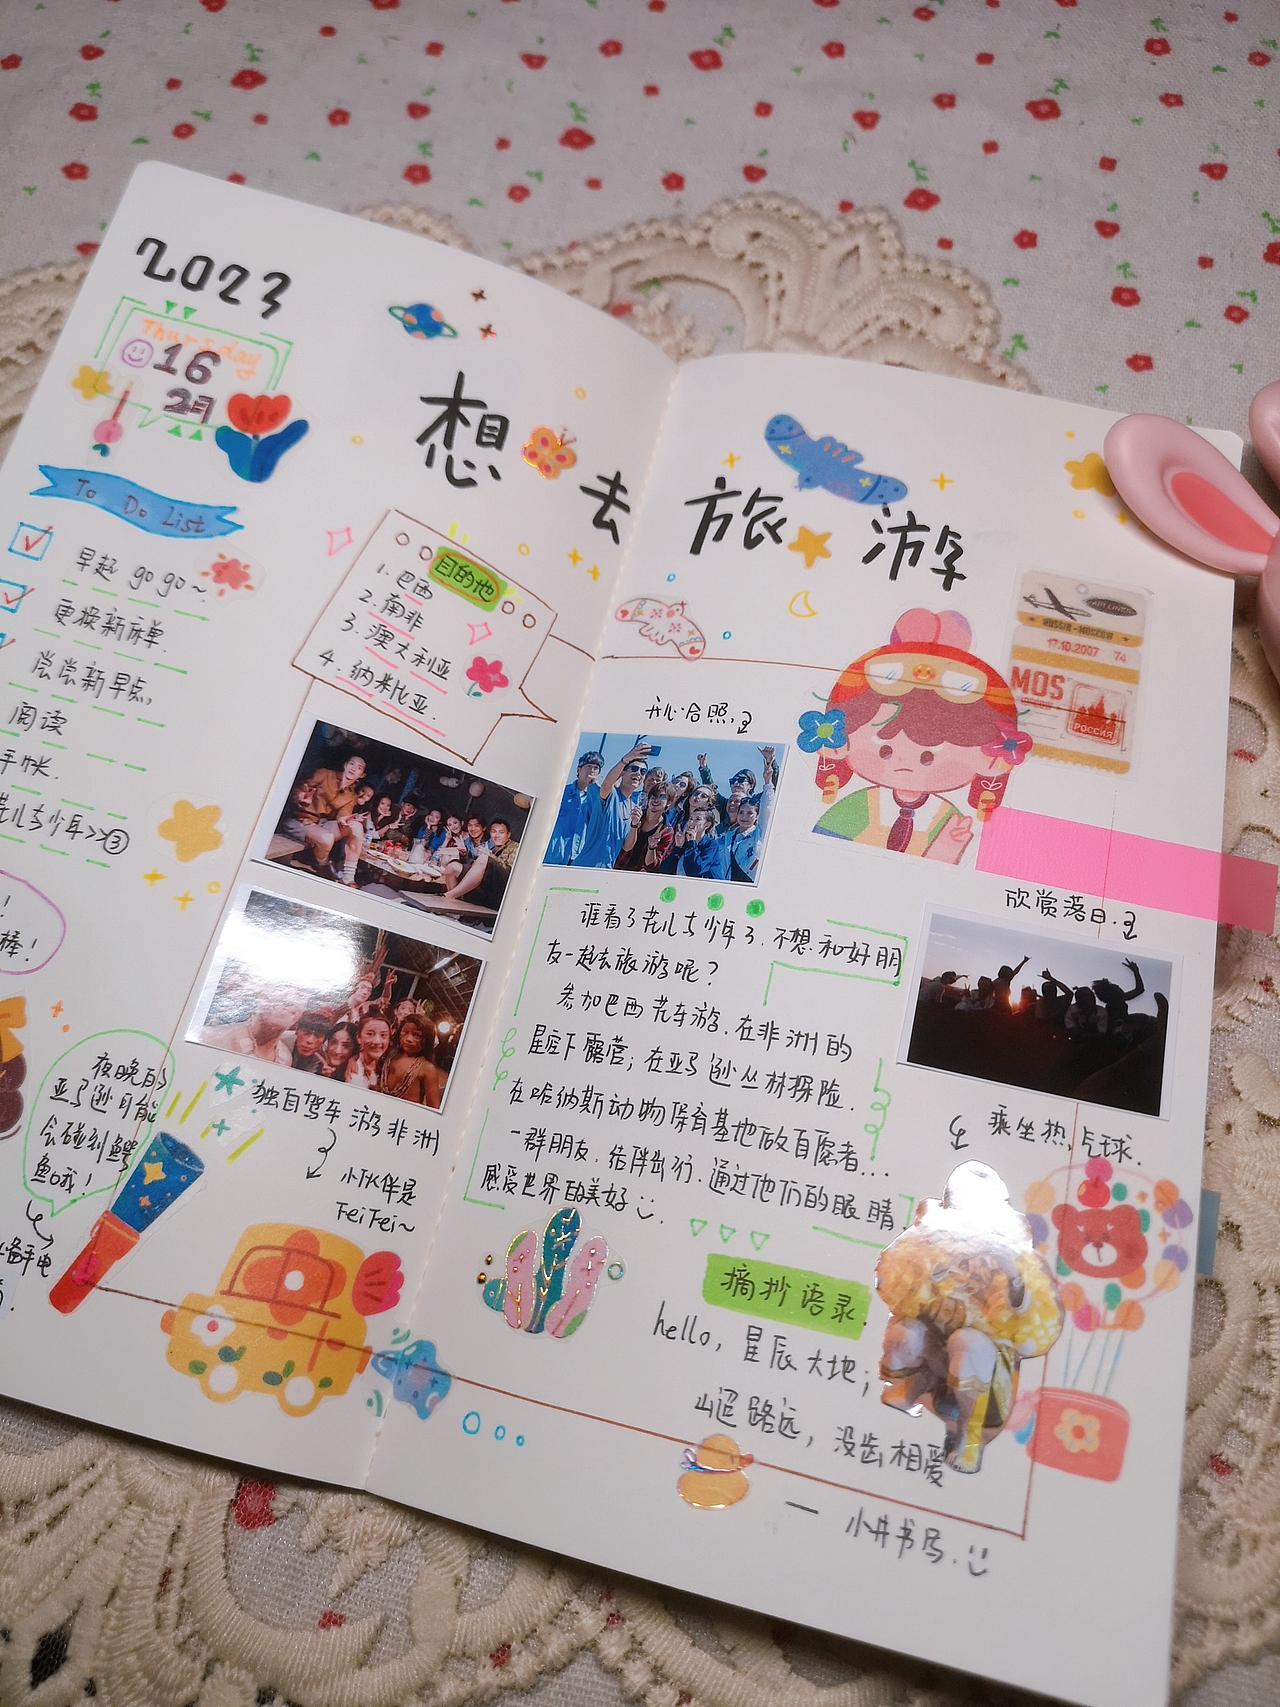 2023
Thursday
16
2月
想去旅游
To Do List
早起 go go~
更换新床单.
尝尝新早点,
阅读
手帐.
花儿与少年>>③
!
棒!
目的地
1. 巴西
2. 南非
3. 澳大利亚
4. 纳米比亚.
夜晚的
亚马逊可能
会碰到鳄
鱼哦!
备手电
独自驾车游非洲
小伙伴是
FeiFei~
开心合照.
AIR LINES
RUSSIA - MOSCOW
17.10.2007 74
MOS
РОССИЯ
谁看了花儿与少年了.不想和好朋
友一起去旅游呢?
参加巴西花车游.在非洲的
星空下露营;在亚马逊丛林探险.
在哈纳斯动物保育基地做自愿者...
一群朋友.结伴出行.通过他们的眼睛.
感受世界的美好
欣赏落日.
乘坐热气球.
摘抄语录.
hello, 星辰大地;
山迢路远, 没齿相爱
— 小井书写.